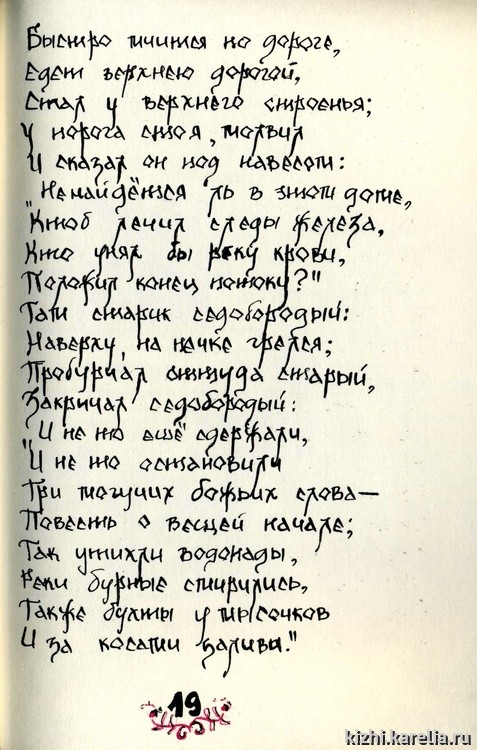 Быстро мчится по дороге,
Едет верхнею дорогой,
Стал у верхнего строенья;
У порога стоя, молвил
И сказал он под навесом:
"Не найдётся ль в этом доме,
Кто б лечил следы железа,
Кто унял бы реку крови,
Положил конец потоку?"
Там старик седобородый:
Наверху, на печке грелся;
Пробурчал оттуда старый,
Закричал седобородый:
"И не то ещё сдержали,
И не то остановили
Три могучих божьих слова—
Повесть о вещей начале;
Так утихли водопады,
Реки бурные смирились,
Также бухты у мысочков
И за косами заливы."
19
kizhi.karelia.ru